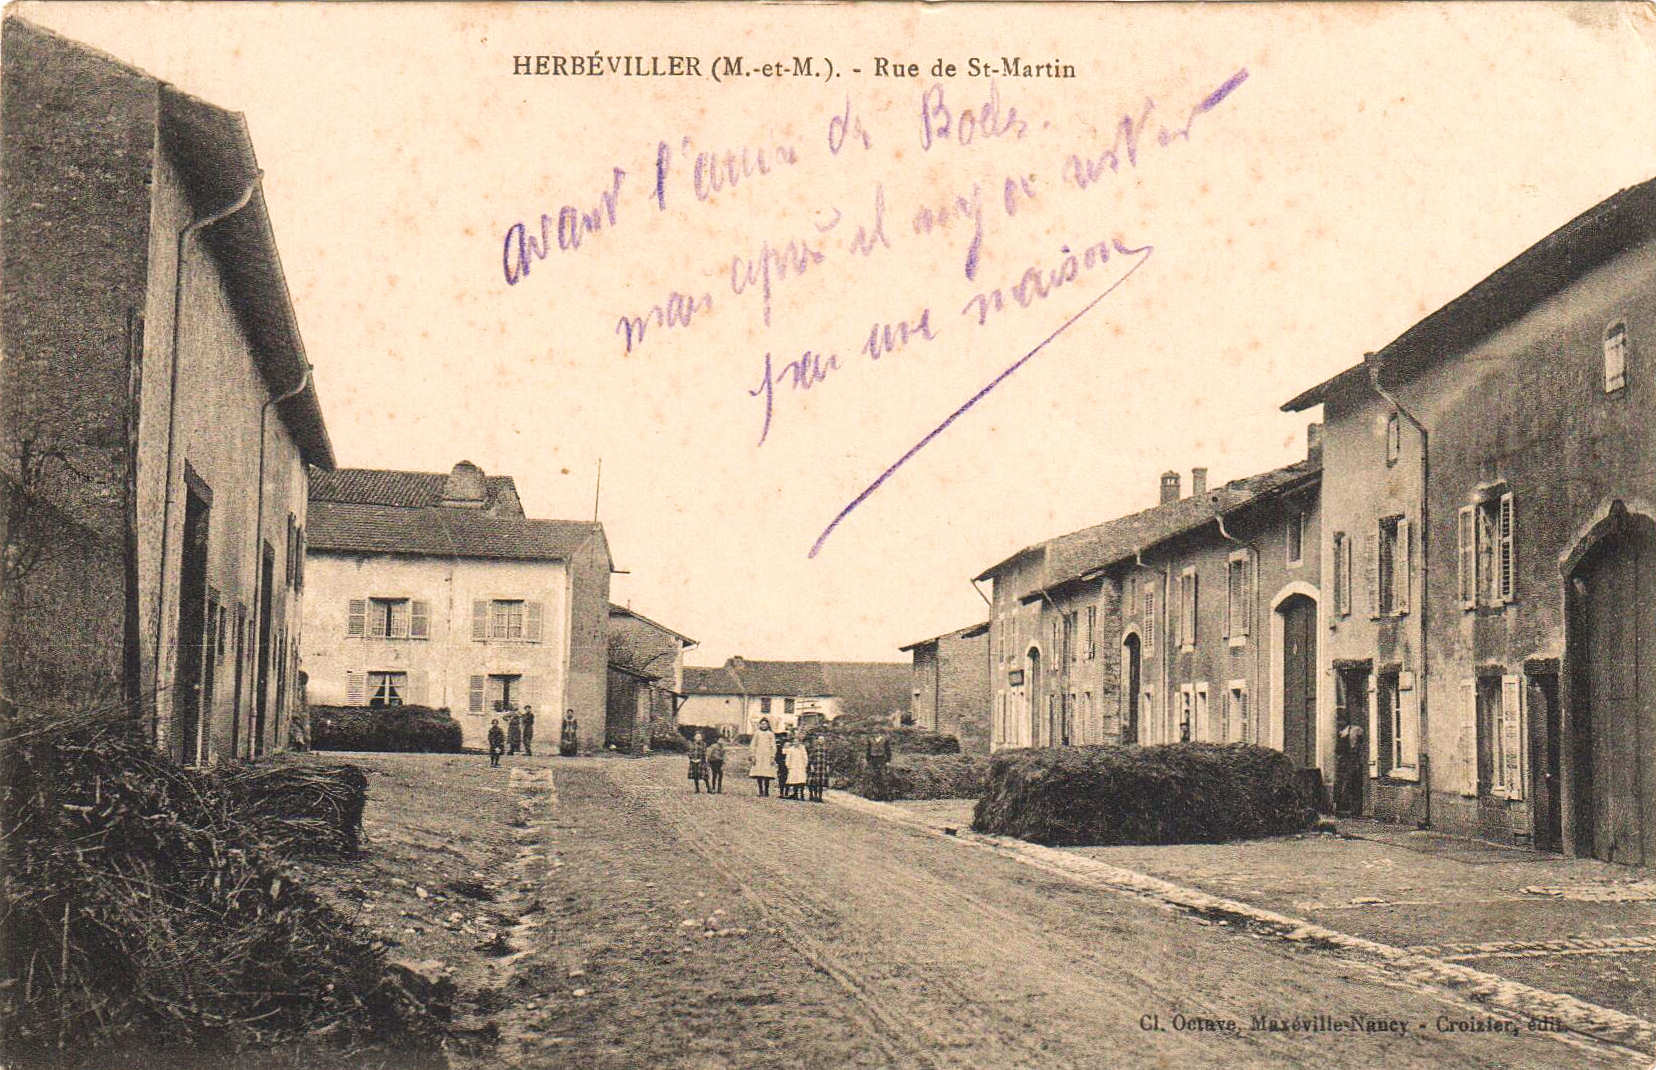 HERBÉVILLER (M.-et-M.). - Rue de St-Martin
avant l'arrivé de Boches.
mais après il n'y a rester
pas une maison
Cl. Octave, Maxéville-Nancy - Croizier, édit.